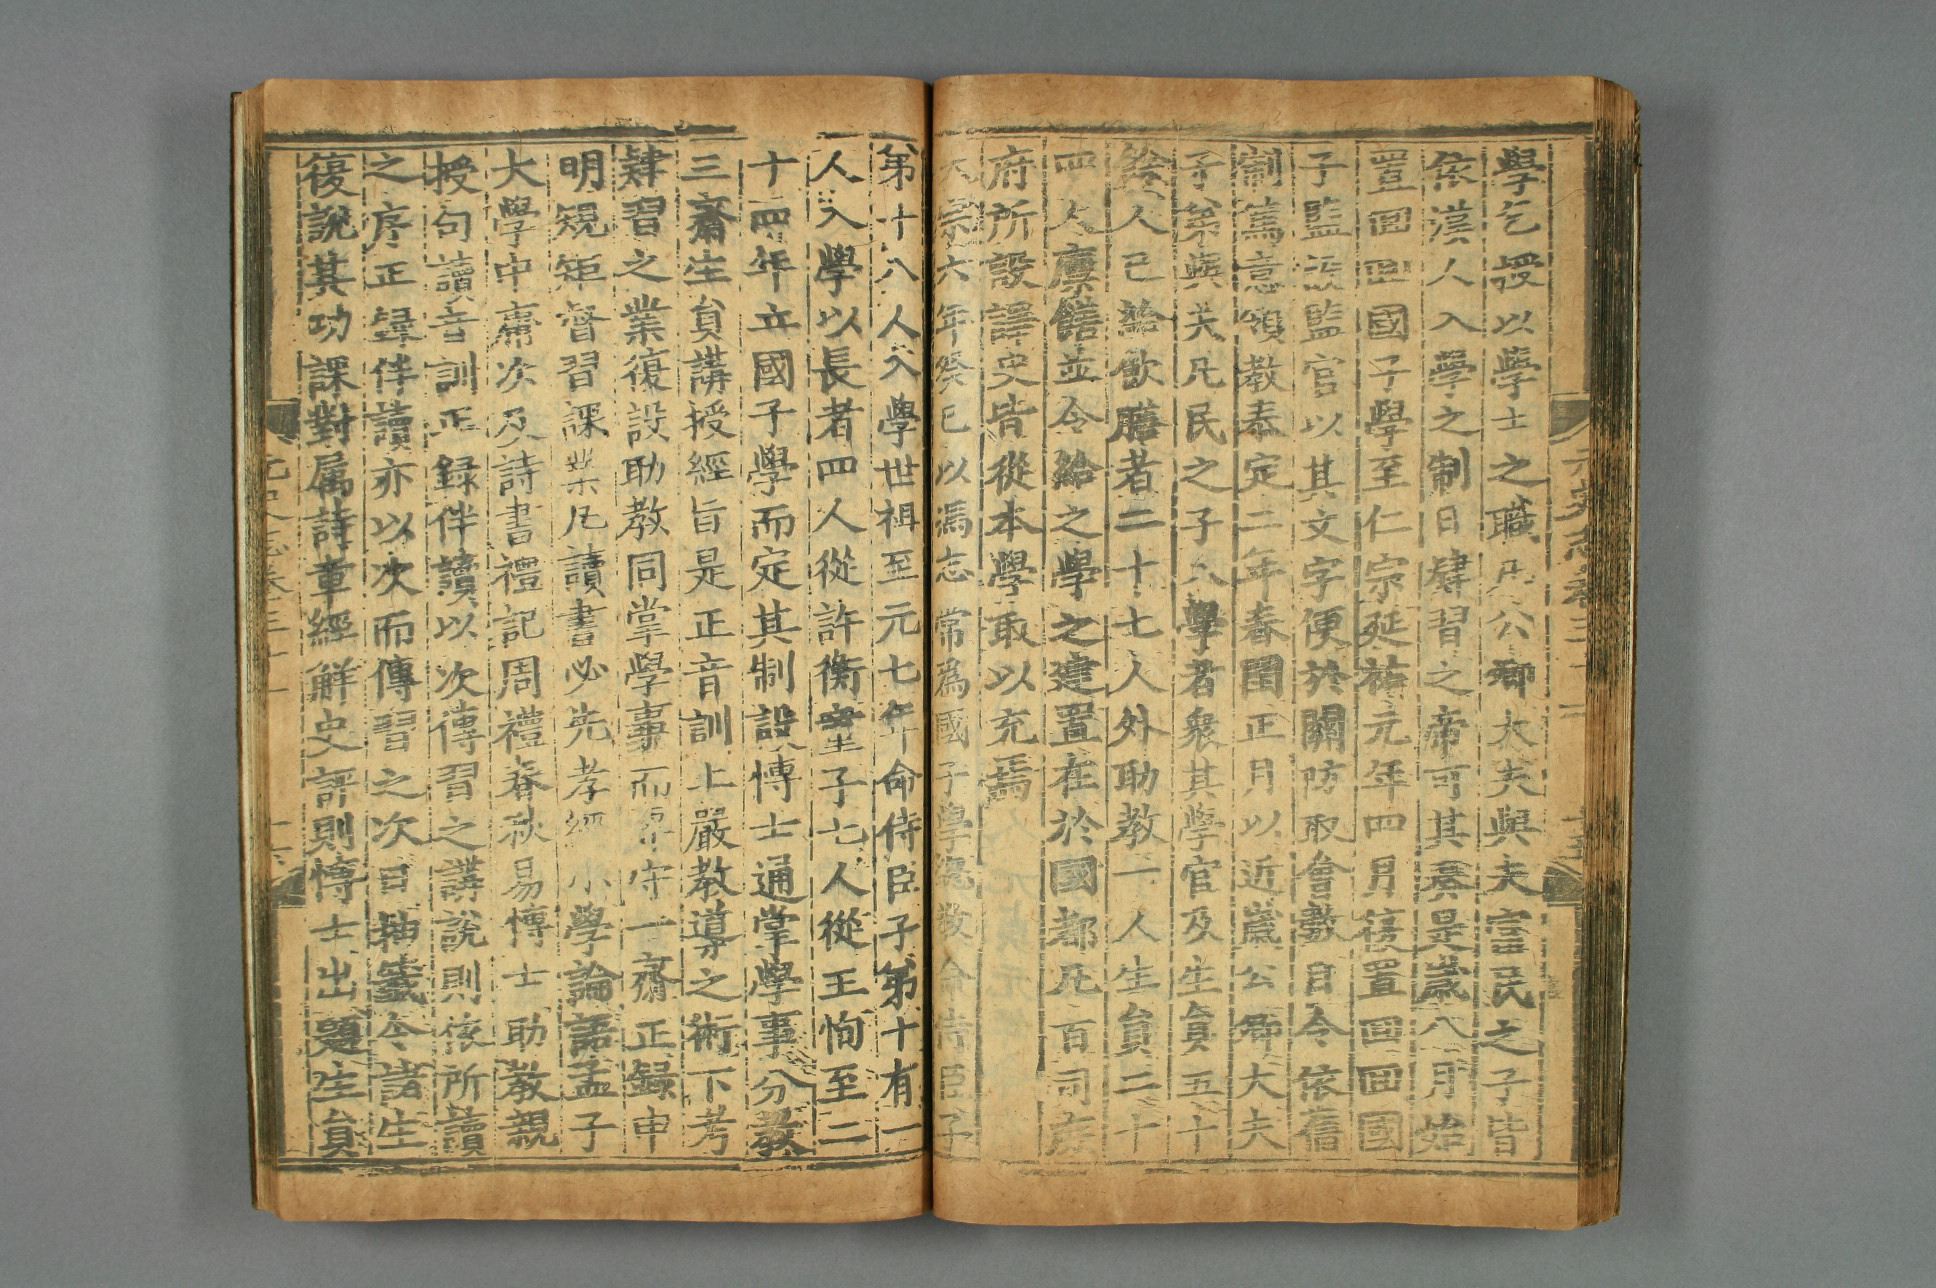 學乞授以學士之職凡公卿大夫與夫富民之子皆
依漢人入學之制日肄習之帝可其奏是歲八月始
置回回國子學至仁宗延祐元年四月復置回回國
子監設監官以其文字便於關防取會數目令依舊
制篤意領教泰定二年春閏正月以近歲公卿大夫
子弟與夫凡民之子入學者衆其學官及生員五十
餘人已給飲膳者二十七人外助教一人生員二十
四人廩饍並令給之學之建置在於國都凡百司庶
府所設譯史皆從本學取以充焉
太宗六年癸巳以馮志常為國子學總教命侍臣子
弟十八人入學世祖至元七年命侍臣子弟十有一
人入學以長者四人從許衡童子七人從王恂至二
十四年立國子學而定其制設博士通掌學事分教
三齋生員講授經旨是正音訓上嚴教導之術下考
肄習之業復設助教同掌學事而專守一齋正録申
明規矩督習課業凡讀書必先孝經小學論語孟子
大學中庸次及詩書禮記周禮春秋易博士助教親
授句讀音訓正録伴讀以次傳習之講說則依所讀
之序正録伴讀亦以次而傳習之次日抽籤令諸生
復說其功課對属詩章經解史評則博士出題生員
元史志卷三十一